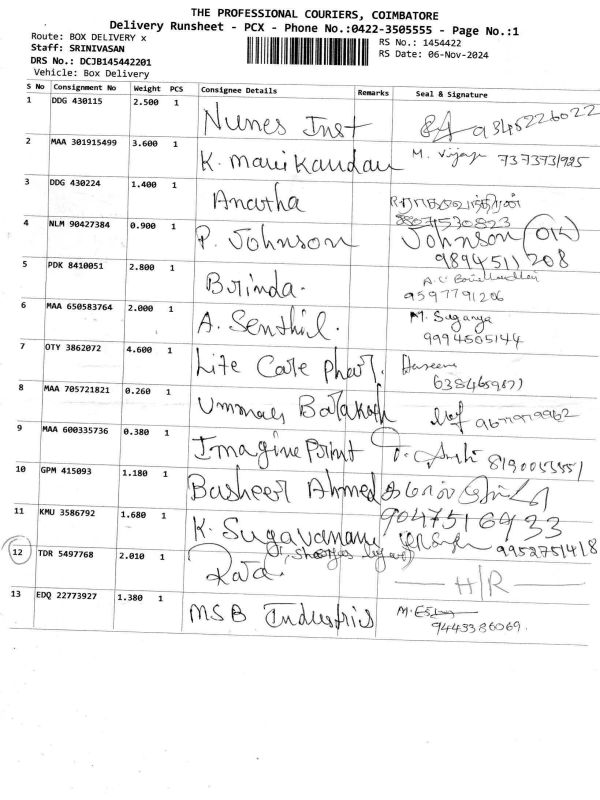 THE PROFESSIONAL COURIERS, COIMBATORE
Delivery Runsheet - PCX - Phone No.:0422-3505555 - Page No.:1
Route: BOX DELIVERY x
RS No.: 1454422
Staff: SRINIVASAN
RS Date: 06-Nov-2024
DRS No.: DCJB145442201
Vehicle: Box Delivery
S No Consignment No Weight PCS Consignee Details Remarks Seal & Signature
1 DDG 430115 2.500 1 Nunes Inst 9345226022
2 MAA 301915499 3.600 1 K. Manikandan M. Vijaya 7373731925
3 DDG 430224 1.400 1 Anatha
8807530823
4 NLM 90427384 0.900 1 P. Johnson Johnson OK
9894511208
5 PDK 8410051 2.800 1 Brinda.
9597791206
6 MAA 650583764 2.000 1 A. Senthil. M. Suganya
9994505144
7 OTY 3862072 4.600 1 Life Care Phar.
8 MAA 705721821 0.260 1
9 MAA 600335736 0.380 1 Imagine Print
10 GPM 415093 1.180 1 Basheer Ahmed
9047516433
11 KMU 3586792 1.680 1 K. Sugavanam 9952751418
12 TDR 5497768 2.010 1 Raja. H/R
13 EDQ 22773927 1.380 1 MSB Industries
9443386069.